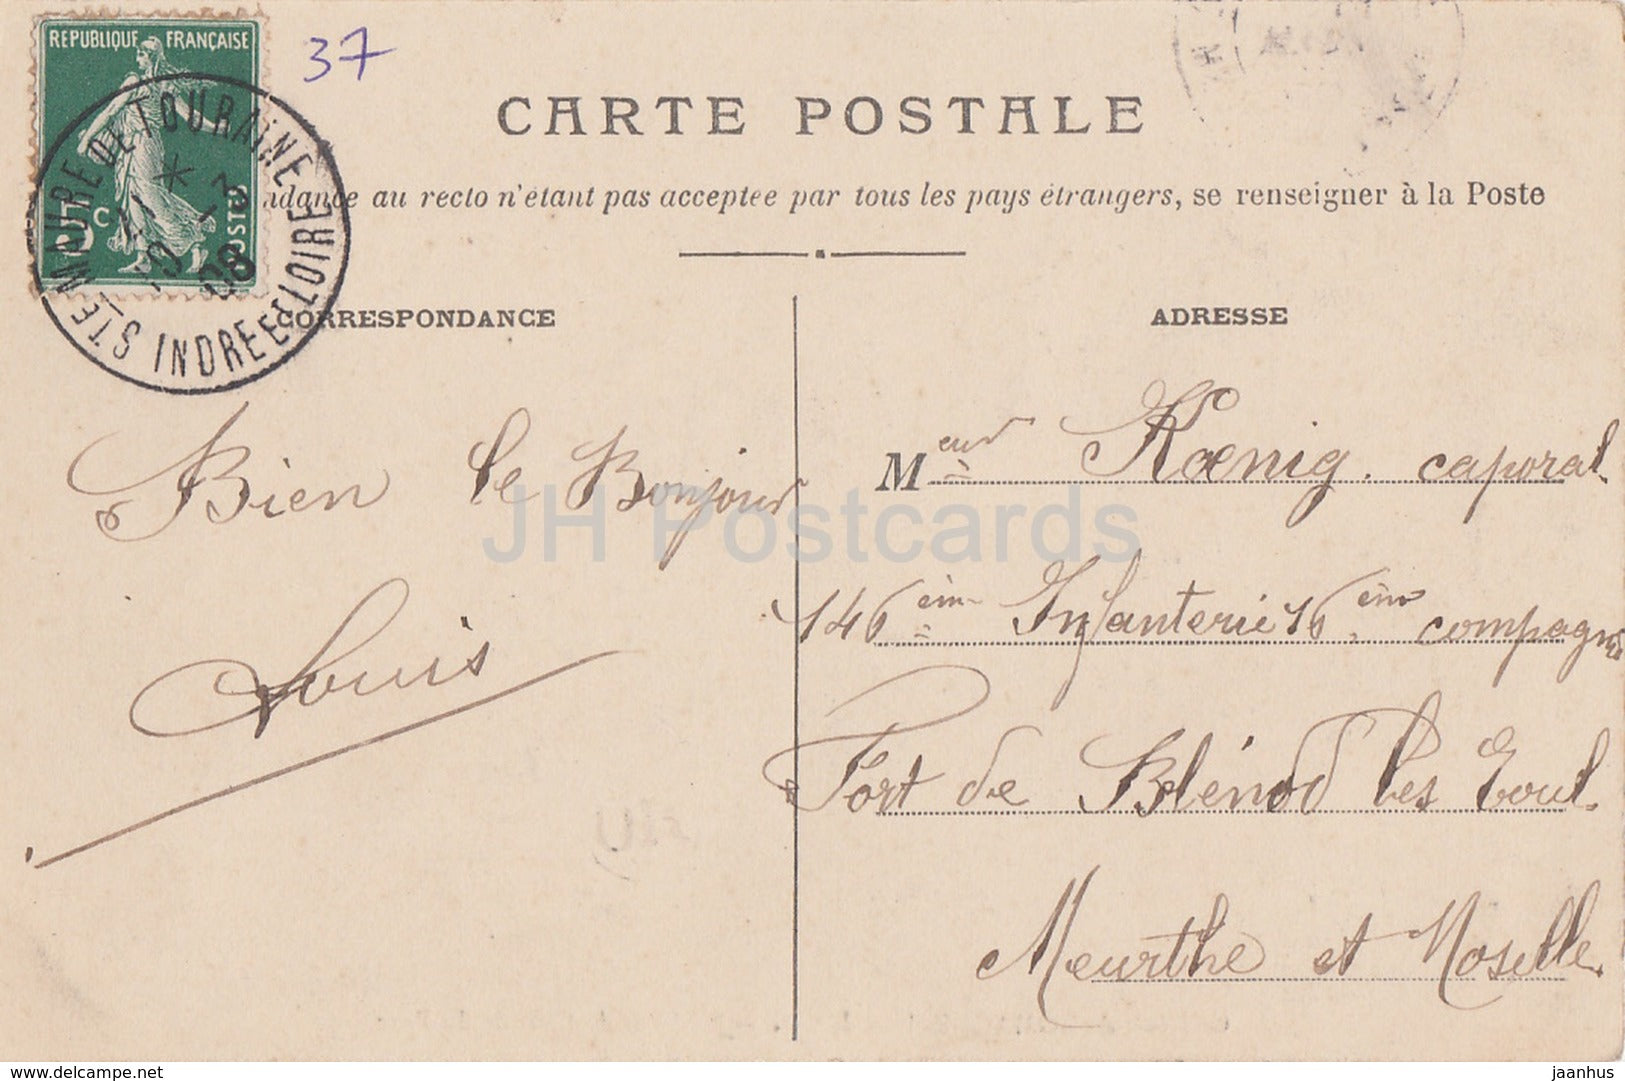 REPUBLIQUE FRANÇAISE
37
5c
POSTES
STE MAURE DE TOURAINE
INDRE ET LOIRE
08
CARTE POSTALE
ndance au recto n'étant pas acceptée par tous les pays étrangers, se renseigner à la Poste
CORRESPONDANCE
Bien le Bonjour
Louis
ADRESSE
Meur Kœnig. caporal
146 ème Infanterie 16 ème compagnie
Fort de Blénod les Toul.
Meurthe et Moselle.
JH Postcards
www.delcampe.net
jaanhus